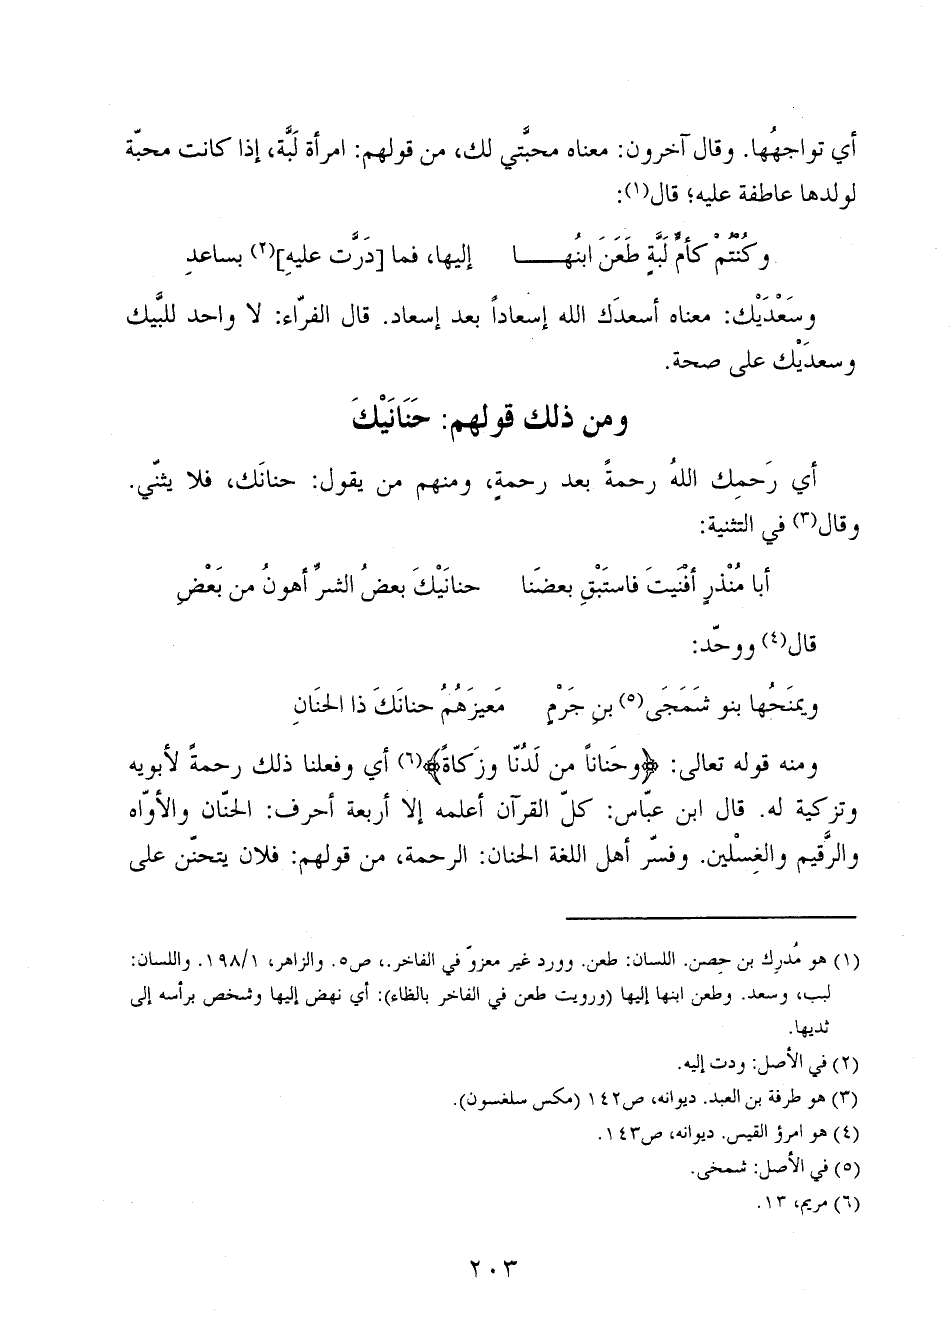 أي تواجهُها. وقال آخرون: معناه محبَّتي لك، من قولهم: امرأة لَبَّة، إذا كانت محبّة
لولدها عاطفة عليه؛ قال(١):
وكُنْتُمْ كأمٍّ لَبَّةٍ طَعَنَ ابنُهـــــا إليها، فما [دَرَّت عليهِ](٢) بساعدِ
وسَعْدَيْك: معناه أسعدَك الله إسعاداً بعد إسعاد. قال الفرّاء: لا واحد للبَّيك
وسعدَيْك على صحة.
ومن ذلك قولهم: حَنَانَيْكَ
أي رَحمِك اللهُ رحمةً بعد رحمةٍ، ومنهم من يقول: حنانَك، فلا يثنّي.
وقال(٣) في التثنية:
أبا مُنْذرٍ أفْنَيتَ فاستَبْقِ بعضَنا حنانَيْكَ بعضُ الشرِّ أهونُ من بَعْضِ
قال(٤) ووحّد:
ويمنَحُها بنو شَمَجَى(٥) بنِ جَرْمٍ مَعيزَهُمُ حنانَكَ ذا الحنَانِ
ومنه قوله تعالى: ﴿وحَناناً من لَدُنّا وزَكاةً﴾(٦) أي وفعلنا ذلك رحمةً لأبويه
وتزكية له. قال ابن عبّاس: كلّ القرآن أعلمه إلا أربعة أحرف: الحنّان والأوّاه
والرَّقيم والغِسْلين. وفسّر أهل اللغة الحنان: الرحمة، من قولهم: فلان يتحنّن على
(١) هو مُدرِك بن حِصن. اللسان: طعن. وورد غير معزوّ في الفاخر.، ص٥. والزاهر، ١٩٨/١. واللسان:
لبب، وسعد. وطعن ابنها إليها (ورويت ظعن في الفاخر بالظاء): أي نهض إليها وشخص برأسه إلى
ثديها.
(٢) في الأصل: ودت إليه.
(٣) هو طرفة بن العبد. ديوانه، ص١٤٢ (مكس سلغسون).
(٤) هو امرؤ القيس. ديوانه، ص١٤٣.
(٥) في الأصل: شمخى.
(٦) مريم، ١٣.
٢٠٣